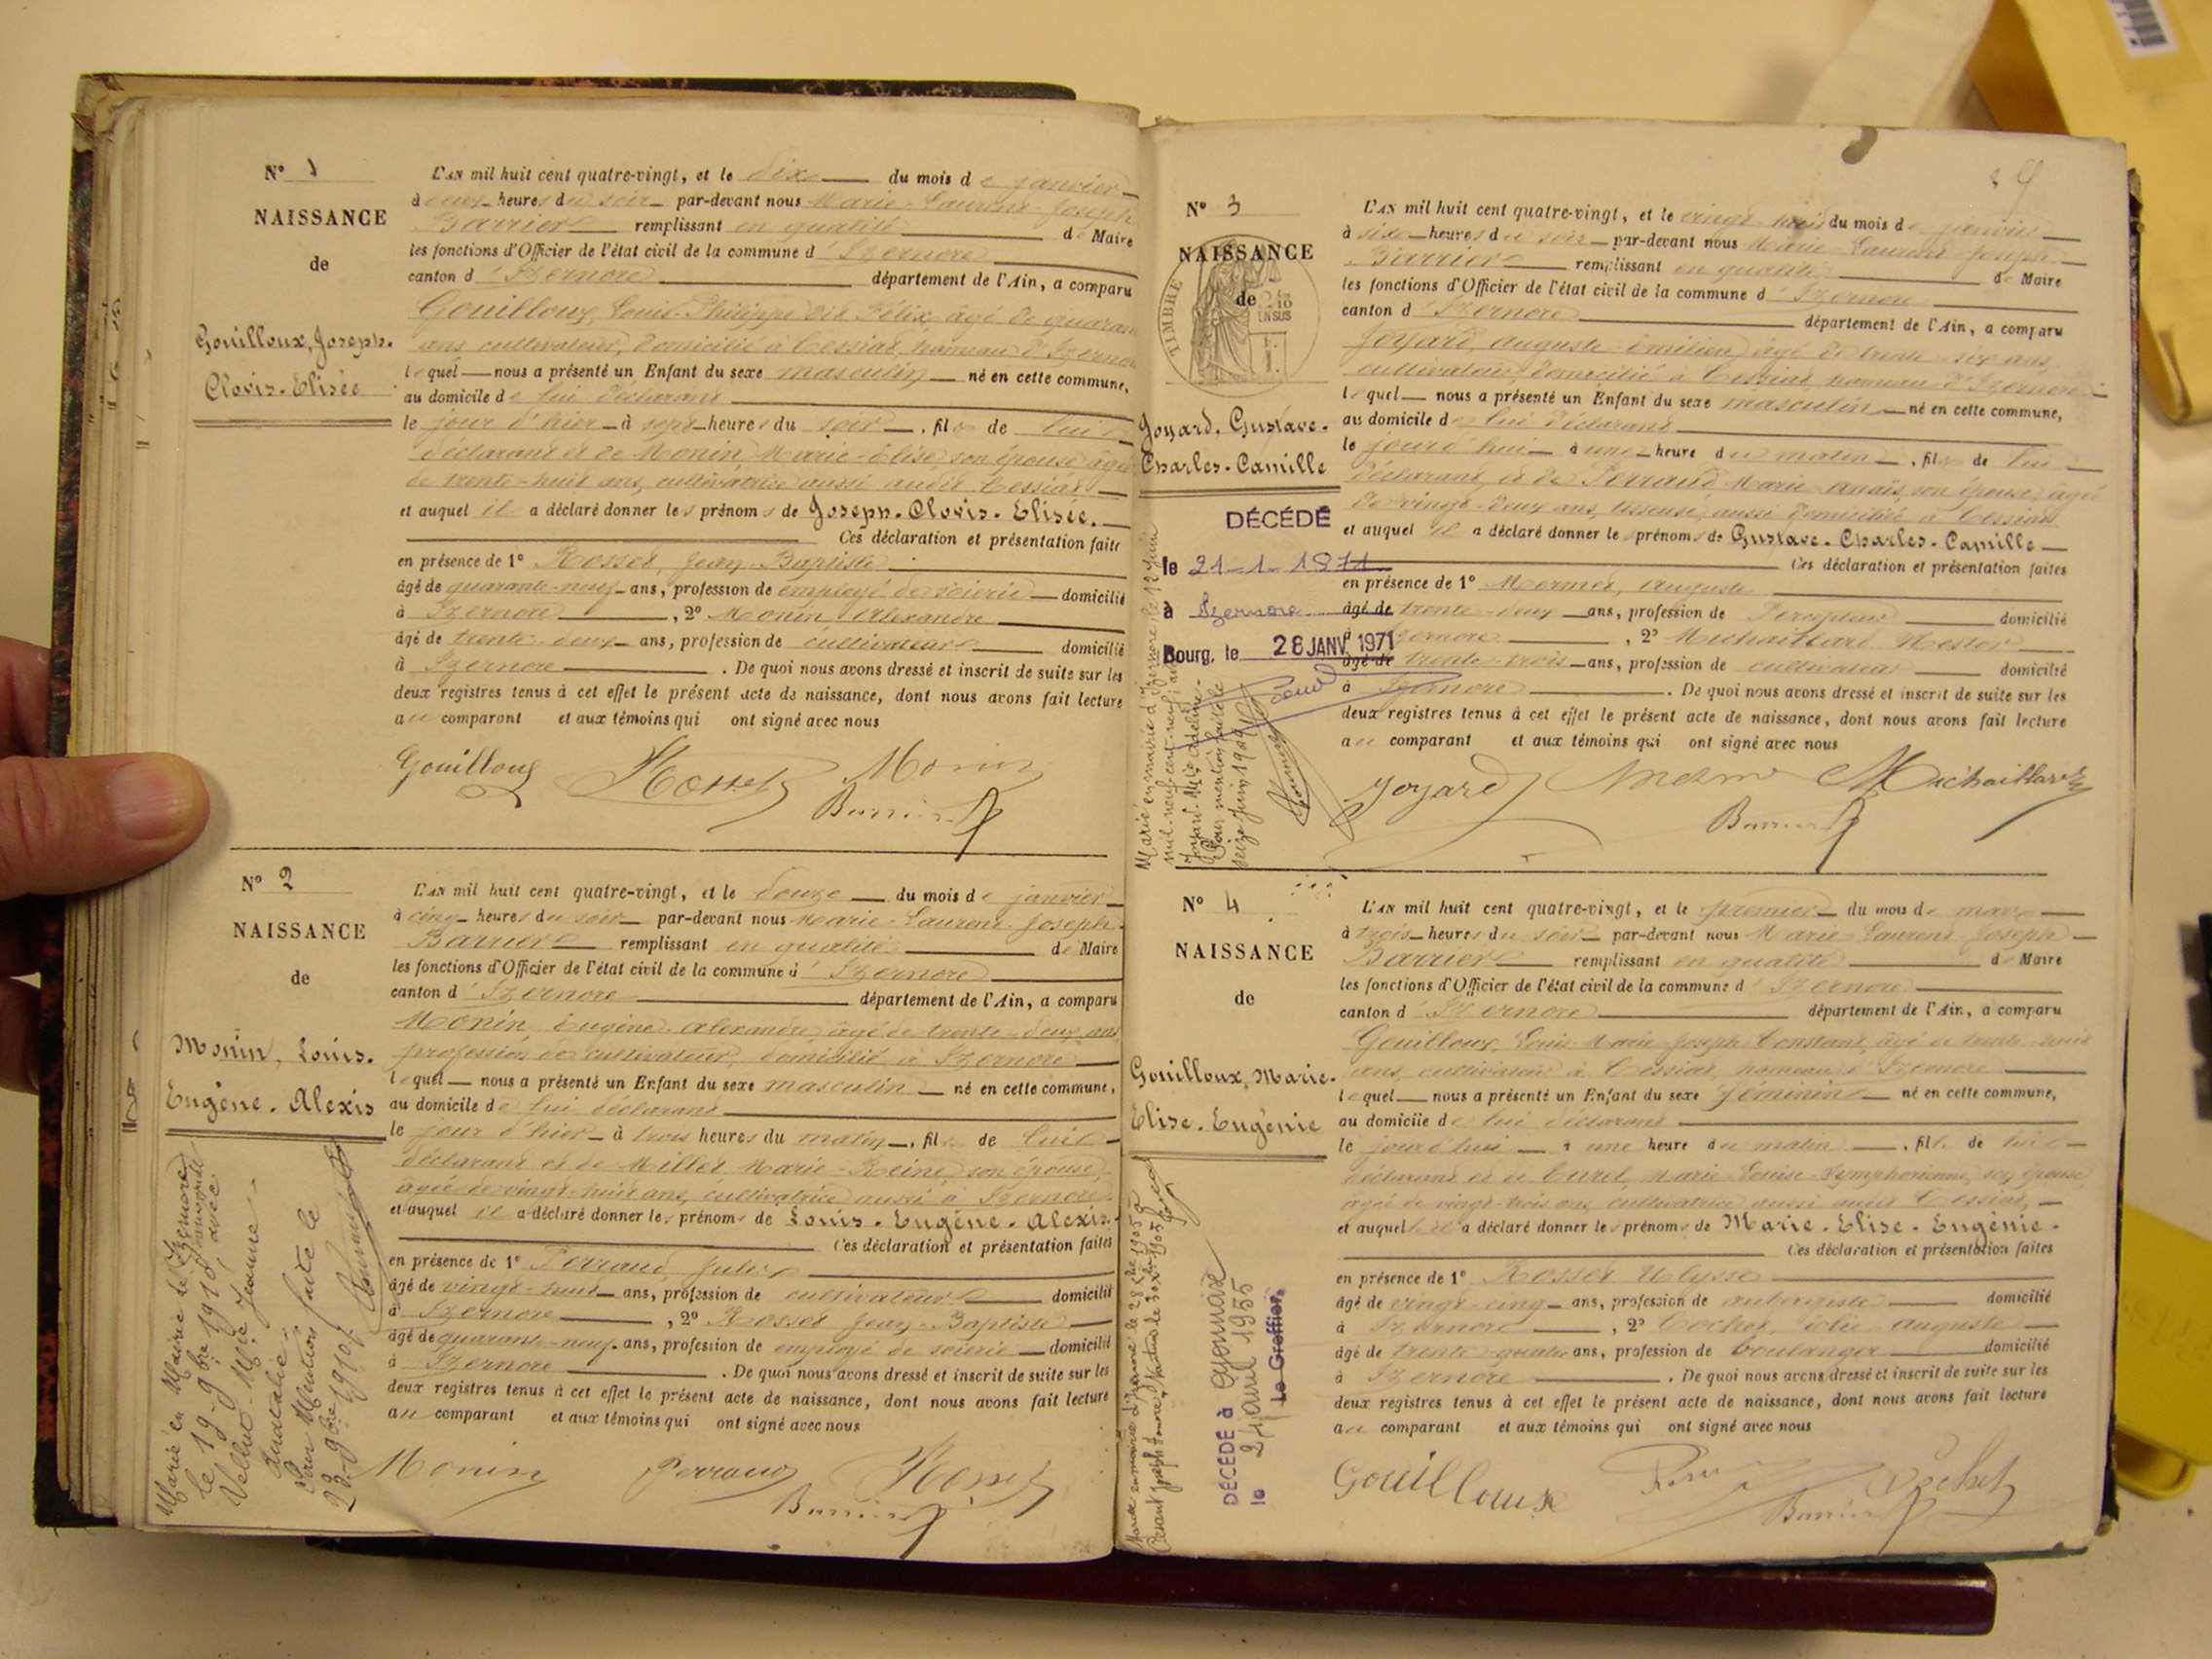 N° 1
NAISSANCE
de
Gouilloux, Joseph.
Clovis-Elisée
L'AN mil huit cent quatre-vingt, et le dix du mois de janvier
à heures du soir par-devant nous Marie-Laurent-Joseph
Barrier remplissant en qualité de Maire
les fonctions d'Officier de l'état civil de la commune d'Izernore
canton d'Izernore département de l'Ain, a comparu
Gouilloux, Louis-Philippe dit Félix, âgé de quarante
ans cultivateur, domicilié à Cessiat, hameau d'Izernore
lequel nous a présenté un Enfant du sexe masculin né en cette commune,
au domicile de lui déclarant
le jour d'hier à sept heures du soir, fils de lui
déclarant et de Monin, Marie-Elise, son épouse âgée
de trente-huit ans, cultivatrice aussi audit Cessiat
et auquel il a déclaré donner les prénoms de Joseph-Clovis-Elisée.
Ces déclaration et présentation faites
en présence de 1° Rosset, Jean-Baptiste
âgé de quarante-neuf ans, profession de employé de scierie domicilié
à Izernore, 2° Monin Alexandre
âgé de trente-deux ans, profession de cultivateur domicilié
à Izernore. De quoi nous avons dressé et inscrit de suite sur les
deux registres tenus à cet effet le présent acte de naissance, dont nous avons fait lecture
au comparant et aux témoins qui ont signé avec nous
Gouilloux Rosset Monin
Barrier
N° 2
NAISSANCE
de
Monin, Louis.
Eugène-Alexis
Marié en Mairie
le 19 9bre 1910 avec
Vellut Mie Jeanne
Pour Mention faite le
23 9bre 1910.
L'AN mil huit cent quatre-vingt, et le douze du mois de janvier
à cinq heures du soir par-devant nous Marie-Laurent-Joseph
Barrier remplissant en qualité de Maire
les fonctions d'Officier de l'état civil de la commune d'Izernore
canton d'Izernore département de l'Ain, a comparu
Monin Eugène-Alexandre, âgé de trente-deux ans
profession de cultivateur, domicilié à Izernore
lequel nous a présenté un Enfant du sexe masculin né en cette commune,
au domicile de lui déclarant
le jour d'hier à trois heures du matin, fils de lui
déclarant et de Millet Marie-Reine, son épouse,
âgée de vingt-huit ans, cultivatrice aussi à Izernore
et auquel il a déclaré donner les prénoms de Louis-Eugène-Alexis.
Ces déclaration et présentation faites
en présence de 1° Perraud Jules
âgé de vingt-huit ans, profession de cultivateur domicilié
à Izernore, 2° Rosset Jean-Baptiste
âgé de quarante-neuf ans, profession de employé de scierie domicilié
à Izernore. De quoi nous avons dressé et inscrit de suite sur les
deux registres tenus à cet effet le présent acte de naissance, dont nous avons fait lecture
au comparant et aux témoins qui ont signé avec nous
Monin Perraud Rosset
Barrier
9
N° 3
NAISSANCE
de
TIMBRE
Joyard. Gustave.
Charles-Camille
DÉCÉDÉ
le 21-1-1971
à Izernore
Bourg, le 28 JANV. 1971
Marié en mairie d'Izernore, le 12 juin
mil-neuf-cent-neuf, avec
Joyard Mie Adeline.
Pour mention faite le
seize juin 1909
L'AN mil huit cent quatre-vingt, et le vingt-trois du mois de janvier
à six heures du soir par-devant nous Marie-Laurent-Joseph
Barrier remplissant en qualité de Maire
les fonctions d'Officier de l'état civil de la commune d'Izernore
canton d'Izernore département de l'Ain, a comparu
Joyard, Auguste-Emilien âgé de trente-six ans,
cultivateur, domicilié à Cessiat hameau d'Izernore
lequel nous a présenté un Enfant du sexe masculin né en cette commune,
au domicile de lui déclarant
le jourd'hui à une heure du matin, fils de lui
déclarant, et de Perraud Marie-Anaïs, son épouse, âgée
de vingt-deux ans, tisseuse, aussi domiciliée à Cessiat
et auquel il a déclaré donner les prénoms de Gustave-Charles-Camille
Ces déclaration et présentation faites
en présence de 1° Mermet, Auguste
âgé de trente-deux ans, profession de Percepteur domicilié
à Izernore, 2° Michaillard Nestor
âgé de trente-trois ans, profession de cultivateur domicilié
à Izernore. De quoi nous avons dressé et inscrit de suite sur les
deux registres tenus à cet effet le présent acte de naissance, dont nous avons fait lecture
au comparant et aux témoins qui ont signé avec nous
Joyard Mermet Michaillard
Barrier
N° 4
NAISSANCE
de
Gouilloux, Marie.
Elise-Eugénie
DÉCÉDÉ à Oyonnax
le 24 avril 1955
Le Greffier,
L'AN mil huit cent quatre-vingt, et le premier du mois de mars
à trois heures du soir par-devant nous Marie-Laurent-Joseph
Barrier remplissant en qualité de Maire
les fonctions d'Officier de l'état civil de la commune d'Izernore
canton d'Izernore département de l'Ain, a comparu
Gouilloux, Louis-Marie-Joseph-Constant, âgé de trente-
ans, cultivateur à Cessiat, hameau d'Izernore
lequel nous a présenté un Enfant du sexe féminin né en cette commune,
au domicile de lui déclarant
le jourd'hui à une heure du matin, fille de lui
déclarant et de Curet, Marie-Louise-Symphorienne, son épouse
âgée de vingt-trois ans, cultivatrice aussi audit Cessiat,
et auquel il a déclaré donner les prénoms de Marie-Elise-Eugénie.
Ces déclaration et présentation faites
en présence de 1° Rosset Ulysse
âgé de vingt-cinq ans, profession de aubergiste domicilié
à Izernore, 2° Cochet, Auguste
âgé de trente-quatre ans, profession de boulanger domicilié
à Izernore. De quoi nous avons dressé et inscrit de suite sur les
deux registres tenus à cet effet le présent acte de naissance, dont nous avons fait lecture
au comparant et aux témoins qui ont signé avec nous
Gouilloux Cochet
Barrier